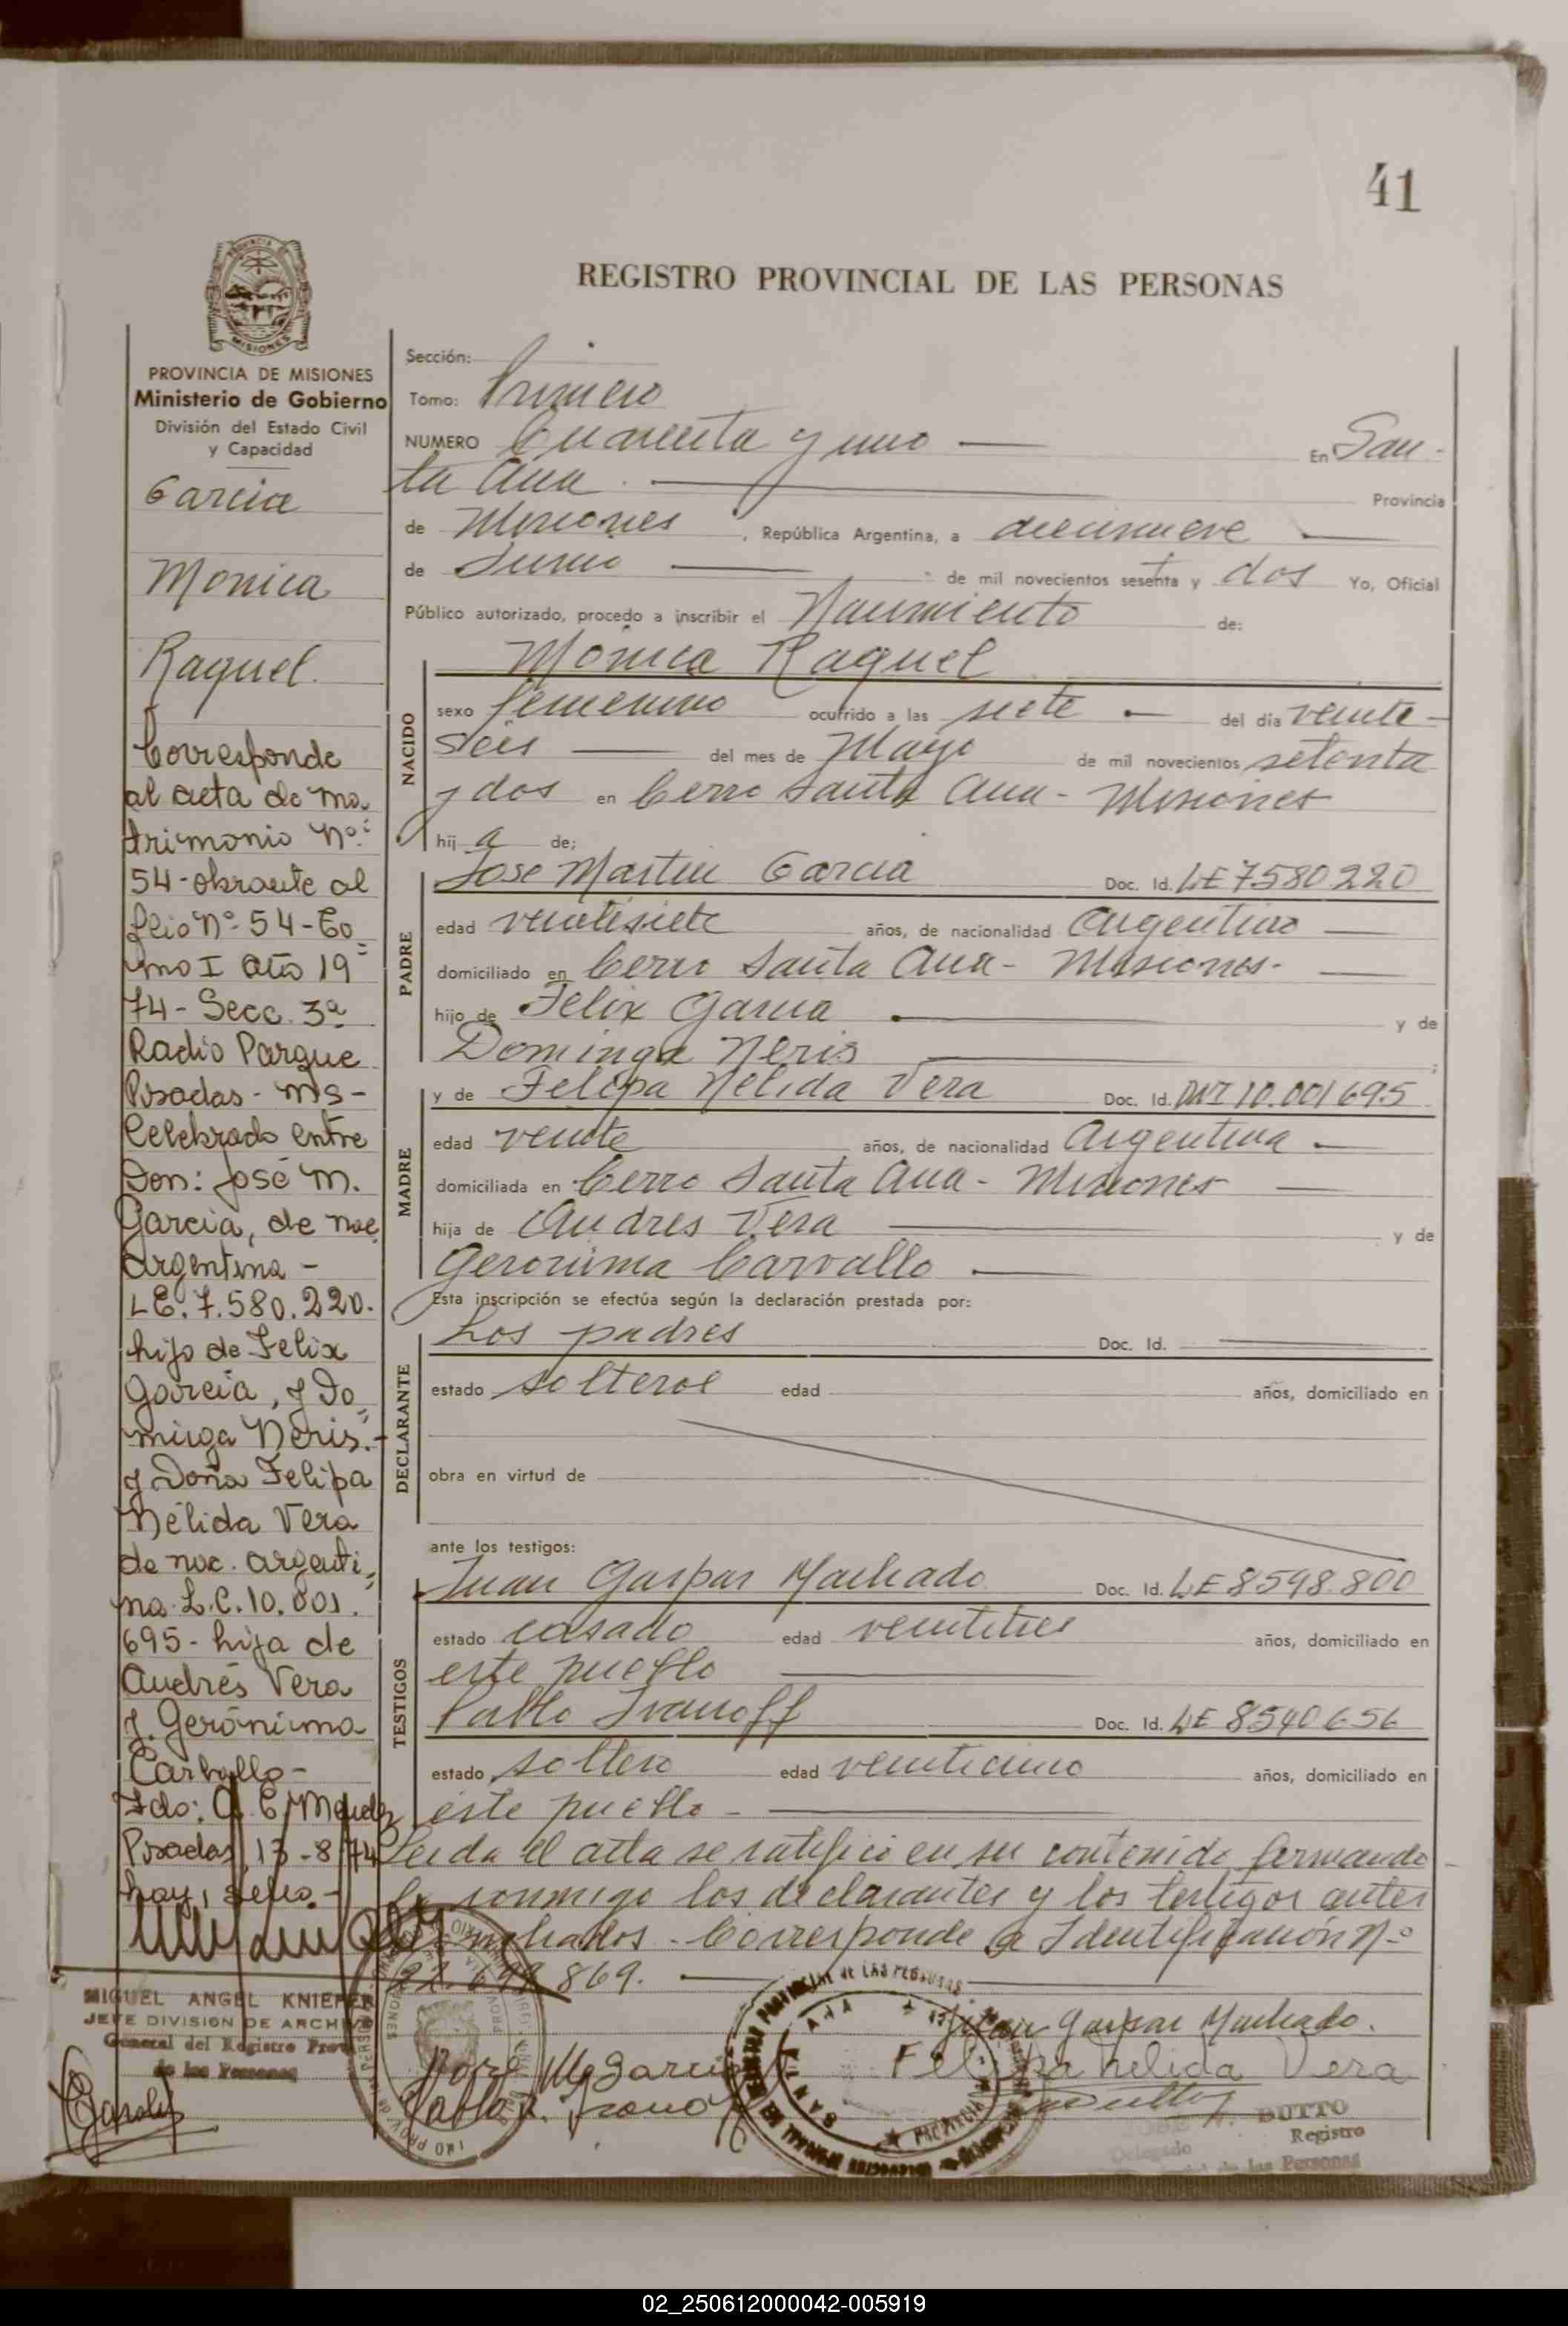 41
REGISTRO PROVINCIAL DE LAS PERSONAS
PROVINCIA DE
MISIONES
PROVINCIA DE MISIONES
Ministerio de Gobierno
División del Estado Civil
y Capacidad
Garcia
Monica
Raquel.
Corresponde
al acta de ma-
trimonio Nº:
54-obrante al
folio Nº 54-To
mo I año 19
74 - Secc. 3ª
Radio Parque
Posadas - Ms -
Celebrado entre
Don: José M.
Garcia, de nac
argentina -
LE. 7.580.220.
hijo de Felix
Garcia, y Do
minga Neris.-
y Doña Felipa
Nélida Vera
de nac. argenti-
na L.C. 10.001.
695 - hija de
Andrés Vera
y Gerónima
Carballo -
Fdo:
Posadas, 13-8-74
hay, sello.-
MIGUEL ANGEL KNIEPER
JEFE DIVISION DE ARCHIVO
General del Registro Prov.
de las Personas
Sección:
Tomo: Primero
NUMERO Cuarenta y uno — En San-
ta Ana. — Provincia
de Misiones, República Argentina, a diecinueve
de Junio — de mil novecientos sesenta y dos Yo, Oficial
Público autorizado, procedo a inscribir el Nacimiento de:
Mónica Raquel
NACIDO
sexo femenino ocurrido a las siete — del día veinte-
seis — del mes de Mayo de mil novecientos setenta
y dos en Cerro Santa Ana - Misiones
hij a de:
PADRE
Jose Martin Garcia Doc. Id. LE 7580220
edad veintisiete años, de nacionalidad Argentino —
domiciliado en Cerro Santa Ana - Misiones. —
hijo de Felix Garcia — y de
Dominga Neris —
MADRE
y de Felipa Nelida Vera Doc. Id. DNI 10.001695
edad veinte años, de nacionalidad Argentina —
domiciliada en Cerro Santa Ana - Misiones —
hija de Andres Vera — y de
Geronima Carvallo —
Esta inscripción se efectúa según la declaración prestada por:
DECLARANTE
Los padres Doc. Id. —
estado solteros edad años, domiciliado en
obra en virtud de
ante los testigos:
TESTIGOS
Juan Gaspar Machado Doc. Id. LE 8598.800
estado casado edad veintitres años, domiciliado en
este pueblo —
Pablo Ivanoff Doc. Id. LE 8540656
estado soltero edad veinticinco años, domiciliado en
este pueblo - —
Leida el acta se ratificó en su contenido firmando
conmigo los declarantes y los testigos antes
Corresponde a Identificación Nº
22.692.869. —
Juan Gaspar Machado.
Jose M Garcia
Felipa Nelida Vera
SANTA ANA
PROVINCIA
BUTTO
Delegado Registro
de las Personas
02_250612000042-005919